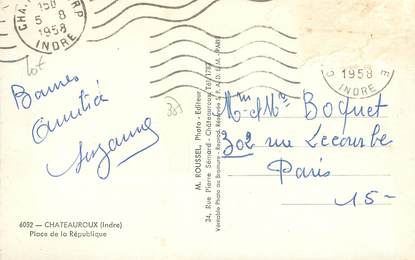 CHA
15H
5 - 8
1958
INDRE
lot
Bonnes
Amitié
Suzanne
6052 — CHATEAUROUX (Indre)
Place de la République
M. ROUSSEL, Photo - Editeur
34, Rue Pierre Sémard - Châteauroux Tél. 1733
Véritable Photo au Bromure - Reprod. Réservée S. P. A. D. E. M. - PARIS
387
1958
INDRE
Mm & Mlle Boquet
302 rue Lecourbe
Paris
15 -